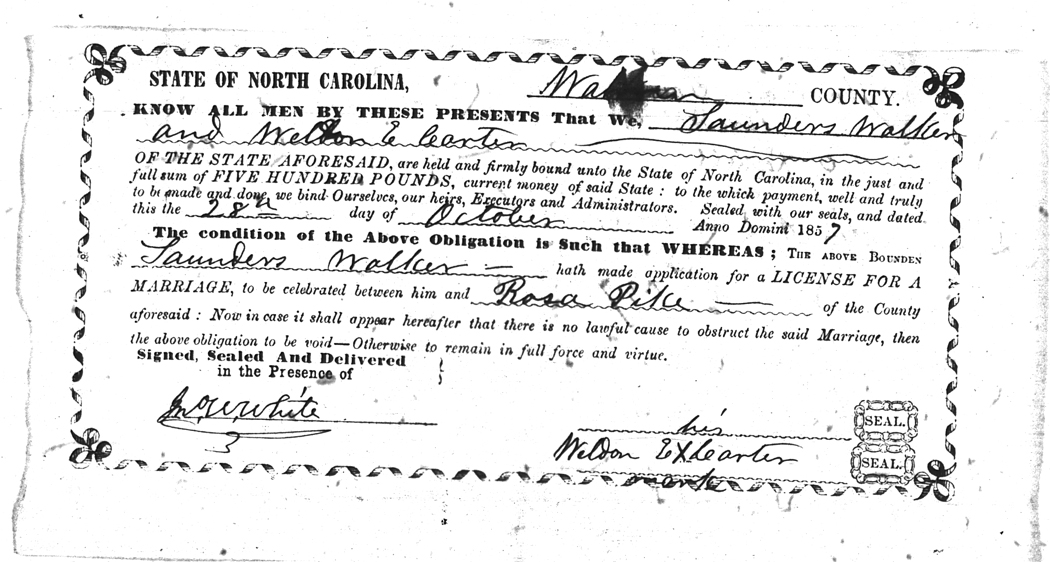 STATE OF NORTH CAROLINA, COUNTY.
KNOW ALL MEN BY THESE PRESENTS That We, Saunders Walker
and Weldon E Carter
OF THE STATE AFORESAID, are held and firmly bound unto the State of North Carolina, in the just and
full sum of FIVE HUNDRED POUNDS, current money of said State : to the which payment, well and truly
to be made and done, we bind Ourselves, our heirs, Executors and Administrators. Sealed, with our seals, and dated
this the 28th day of October Anno Domini 1857
The condition of the Above Obligation is Such that WHEREAS ; THE ABOVE BOUNDEN
Saunders Walker — hath made application for a LICENSE FOR A
MARRIAGE, to be celebrated between him and Rosa Pike — of the County
aforesaid : Now in case it shall appear hereafter that there is no lawful cause to obstruct the said Marriage, then
the above obligation to be void—Otherwise to remain in full force and virtue.
Signed, Sealed And Delivered
in the Presence of
Jno. W. White
his SEAL.
Weldon E X Carter SEAL.
mark